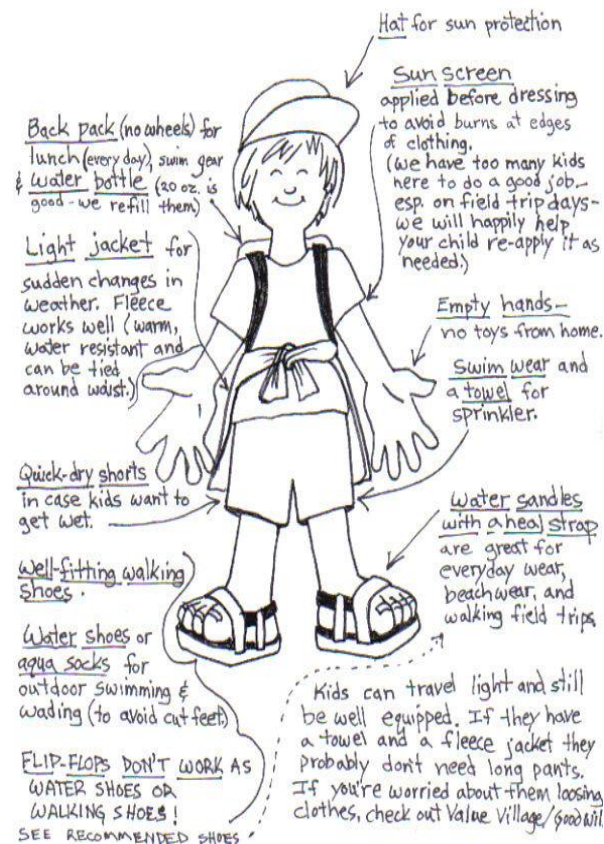 Hat for sun protection
Sun screen
applied before dressing
to avoid burns at edges
of clothing.
(we have too many kids
here to do a good job—
esp. on field trip days—
we will happily help
your child re-apply it as
needed.)
Back pack (no wheels) for
lunch (every day), swim gear
& water bottle (20 oz. is
good - we refill them)
Light jacket for
sudden changes in
weather. Fleece
works well (warm,
water resistant and
can be tied
around waist.)
Empty hands—
no toys from home.
Swim wear and
a towel for
sprinkler.
Quick-dry shorts
in case kids want to
get wet.
Water sandles
with a heal strap
are great for
everyday wear,
beachwear, and
walking field trips.
Well-fitting walking
shoes.
Water shoes or
aqua socks for
outdoor swimming &
wading (to avoid cut feet)
FLIP-FLOPS DON'T WORK AS
WATER SHOES OR
WALKING SHOES!
SEE RECOMMENDED SHOES
Kids can travel light and still
be well equipped. If they have
a towel and a fleece jacket they
probably don't need long pants.
If you're worried about them loosing
clothes, check out Value Village/Goodwil